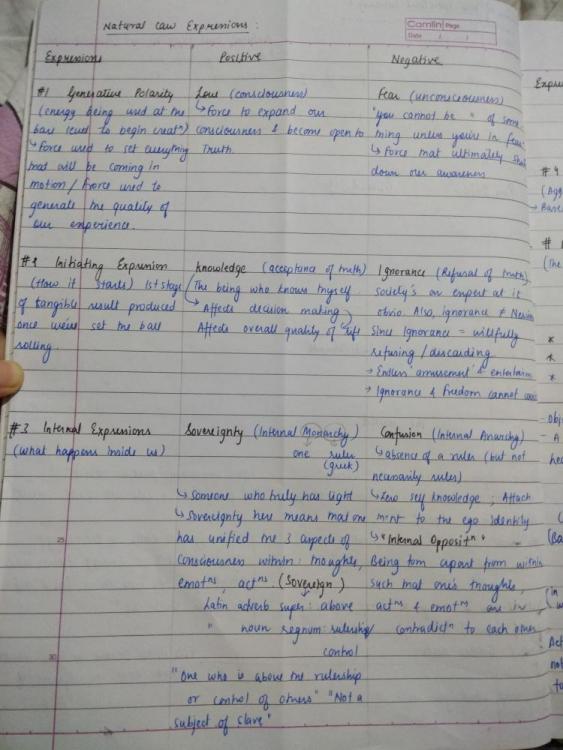 Natural Law Expressions :
Camlin Page
Date / /
Expressions Positive Negative
#1 Generative Polarity
(energy being used at the
base level to begin creatⁿ)
↳ Force used to set everything
that will be coming in
motion / Force used to
generate the quality of
our experience.
Love (consciousness)
↳ Force to expand our
consciousness & become open to
Truth.
Fear (unconsciousness)
"you cannot be " of some
thing unless you're in fear"
↳ Force that ultimately
down our awareness
#2 Initiating Expression
(How it starts) 1st stage
of tangible result produced
once we've set the ball
rolling.
Knowledge (acceptance of truth)
The being who knows myself
↳ Affects decision making
Affects overall quality of life
Ignorance (Refusal of truth)
Society's an expert at it
obvio. Also, ignorance ≠
Since Ignorance = willfully
refusing / discarding
→ Endless 'amusement' &
→ Ignorance & Freedom cannot
#3 Internal Expressions
(What happens inside us)
Sovereignty (Internal Monarchy)
one ruler
(greek)
↳ Someone who truly has light
↳ Sovereignty here means that one
has unified the 3 aspects of
consciousness within: thoughts,
emotⁿˢ, actⁿˢ (Sovereign)
Latin adverb super: above
" noun regnum: rulership/
control
"One who is above the rulership
or control of others" "Not a
subject of slave"
Confusion (Internal Anarchy)
↳ absence of a ruler (but not
necessarily rules)
↳ Zero self knowledge ; Attach
ment to the ego identity
↳ "Internal Oppositⁿ"
Being torn apart from within
such that one's thoughts,
actⁿˢ & emotⁿˢ are in
contradictⁿ to each other
25
30